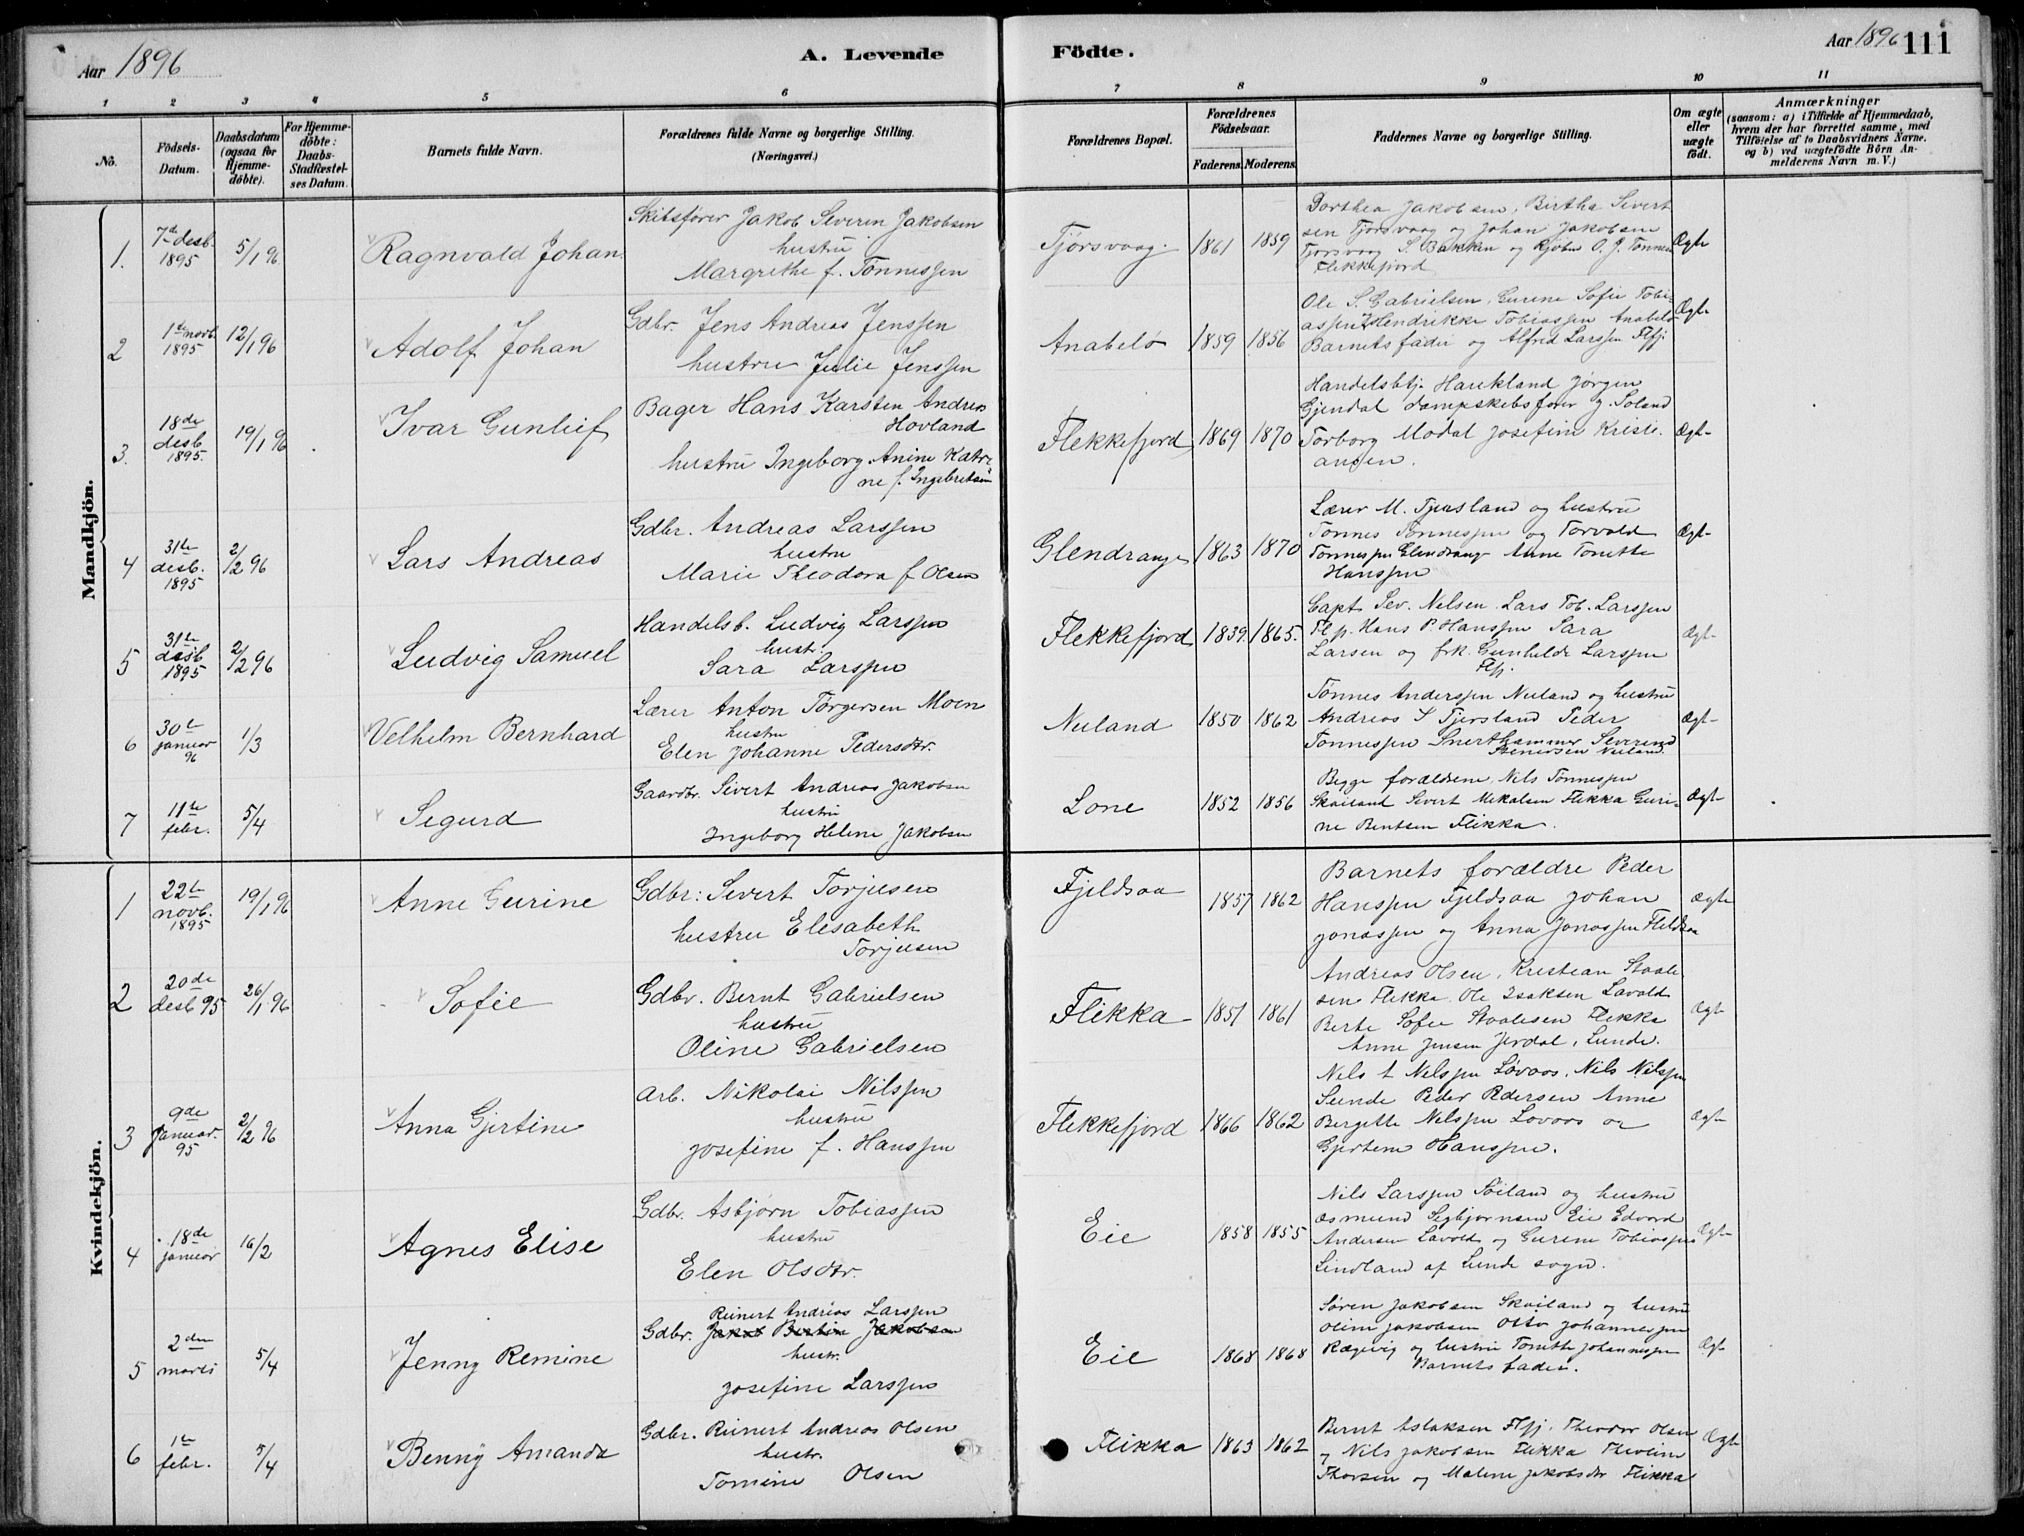 Aar 1896
A. Levende Födte.
Aar 1896 111
1 2 3 4 5 6 7 8 9 10 11
No.
Födsels-Datum.
Daabsdatum (ogsaa for Hjemmedöbte).
For Hjemmedöbte: Daabs-Stadfæstelses Datum.
Barnets fulde Navn.
Forældrenes fulde Navne og borgerlige Stilling. (Næringsvei.)
Forældrenes Bopæl.
Forældrenes Födselsaar.
Faderens. Moderens.
Faddernes Navne og borgerlige Stilling.
Om ægte eller uægte födt.
Anmærkninger
(saasom: a) i Tilfælde af Hjemmedaab, hvem der har forrettet samme, med Tilföielse af to Daabsvidners Navne. og b) ved uægtefödte Börn Anmelderens Navn m. V.)
Mandkjön.
1. 7de desb. 1895 5/1 96 Ragnvald Johan
Skibsfører Jakob Severin Jakobsen
hustru
Margrethe f. Tønnessen
Tjørsvaag. 1861 1859
Dorthea Jakobsen, Birtha Sivert
sen Tjorsvaag og Johan Jakobsen
Tjorsvaag S. Bakken og Kjøbm O. J. Tonnes
Flekkefjord
Ægte
2 1ste novb. 1895 12/1 96 Adolf Johan
Gdbr. Jens Andreas Jenssen
hustru Julie Jenssen
Anabelø 1859 1856
Ole S. Gabrielsen, Gurine Sofie Tobi-
assen Hendrikke Tobiassen Anabelø
Barnets fader og Alfred Larssen Flfj.
Ægte
3. 18de desb 1895. 19/1 96 Ivar Gunleif
Bager Hans Karsten Andreas
Hovland
hustru Ingeborg Anine Katri-
ne f. Ingebretsen
Flekkefjord 1869 1870
Handelsbtj. Haukland Jørgen
Gjendal dampskibsfører J. Soland
Torborg Modal Josefine Kristi-
ansen.
Ægt-
4 31te desb. 1895 2/2 96 Lars Andreas
Gdbr. Andreas Larssen
hustru
Marie Theodora f Olsen
Glendrange 1863 1870
Lærer M. Tjersland og hustru
Tonnes Tonnessen og Torvald
Tonnessen Glendrang Anne Tonette
Hanssen
Ægt-
5 31te desb 1895 2/2 96 Ludvig Samuel
Handelsb. Ludvig Larssen
hust.
Sara Larssen
Flekkefjord 1839. 1865.
Capt Sev. Nilsen Lars Tob. Larssen
Flfj. Hans P. Hanssen Sara
Larsen og frk. Gunhilde Larssen
Flfj
Ægt-
6 30te januar 96 1/3 Velhelm Bernhard
Lærer Anton Tørgersen Moen
hustru
Elen Johanne Pedersdtr.
Nuland 1850 1862
Tønnes Anderssen Nuland og hustru
Andreas S Tjersland Peder
Tonnessen Snerthammer Severine
Stenersen Nuland.
Ægt-
7 11te febr. 5/4 Segurd
Gaardbr. Sivert Andreas Jakobsen
hustru
Ingeborg Helene Jakobsen
Lone 1852 1856
Begge forældrene, Nils Tønnessen
Skailand Sivert Mikalsen Flikka Guri-
ne Bentsen Flikka.
Ægt-
Kvindekjön.
1 22te novb. 1895 19/1 96 Anne Gurine
Gdbr: Sivert Torjusen
hustru Elesabeth
Torjusen
Fjeldsaa 1857 1862
Barnets forældre Peder
Hanssen Fjeldsaa Johan
Jonassen og Anna Jonassen Fjeldsaa
Ægte
2 20de desb 95 26/1 96 Sofie
Gdbr. Bernt Gabrielsen
hustru
Oline Gabrielsen
Flikka 1851 1861
Andreas Olsen, Kristian Staale
sen Flikka. Ole Isaksen Lavold
Berte Sofie Staalesen Flikka
Anne Jensen Jerdal, Lunde.
Ægt-
3 9de Januar. 95 2/2 96 Anna Gjertine
Arb. Nikolai Nilssen
hustru
Josefine f. Hanssen
Flekkefjord 1866 1862
Nils t Nilssen Løvaas, Nils Nilssen
Lunde Peder Pedersen Anne
Bergitte Nilssen Lovaas og
Gjertine Hanssen.
Ægt-
4 18de januar 16/2 Agnes Elise
Gdbr. Asbjørn Tobiassen
hustru
Elen Olsdtr.
Eie 1858 1855
Nils Larssen Søiland og hustru
Osmund Segbjørnsen Eie Edvard
Andersen Lavold og Gurine Tobiassen
Lindland af Lunde sogn.
Ægt-
5 2den marts 5/4 Jenny Remine
Reinert Andreas Larssen
Gdbr. Jakob Bertin Jakobsen
hustr.
Josefine Larssen
Eie 1868 1868
Søren Jakobsen Skailand og hustru
Oline Jakobsen Otto Johannessen
Rægevig og hustru Tonette Johannessen
Barnets fader.
Ægt
6 1te febr. 5/4 Benny Amanda
Gdbr. Reinert Andreas Olsen
hustr.
Tomine Olsen
Flikka 1863 1862
Bernt Aslaksen Flfj. Theodor Olsen
og Nils Jakobsen Flikka Theoline
Thorsen og Maline Jakobsdtr Flikka
Ægte